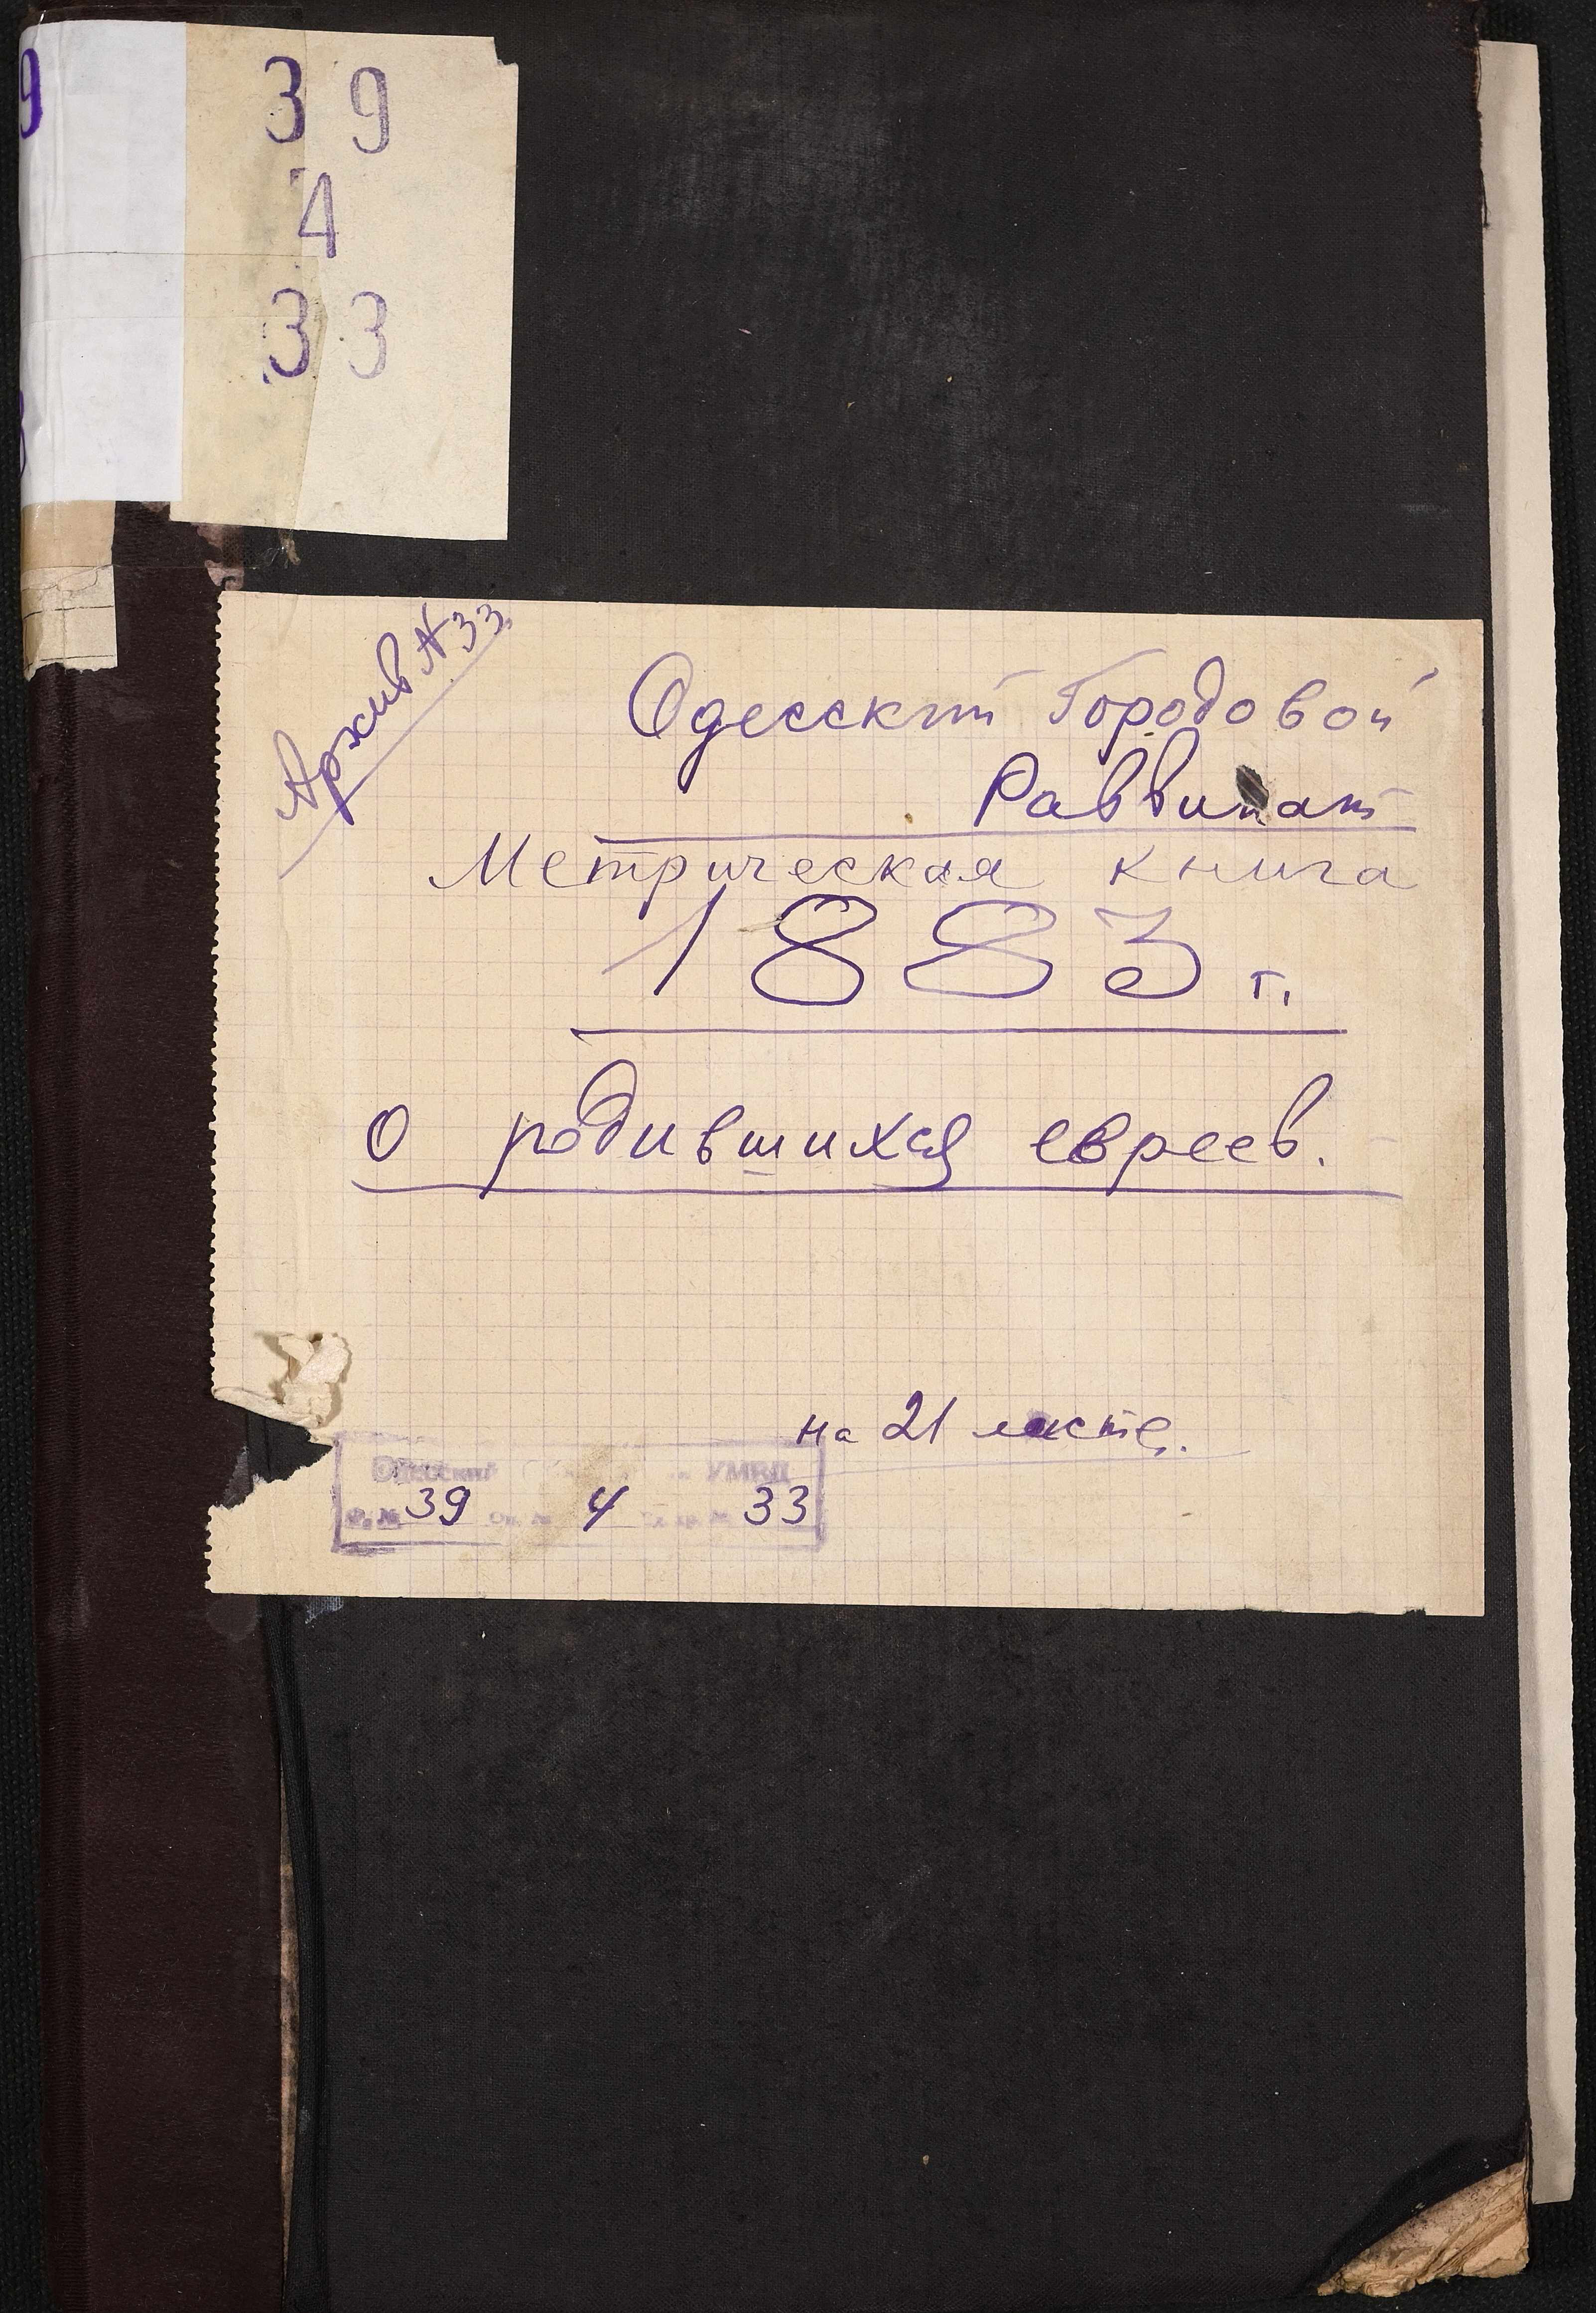 9
39
4
33
Архив N 33
Одесский Городовой
Раввинат
Метрическая книга
1883 г.
о родившихся евреев.
на 21 листе.
Одесский УМВД
Ф. № 39 Оп. № 4 33